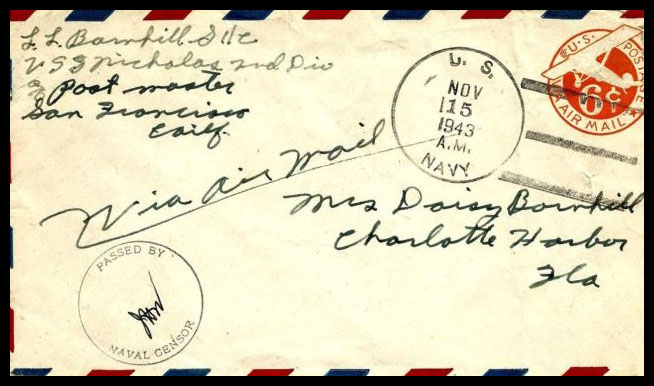 L. L. Barnhill S 1/c
U S S Nicholas 2nd Div
℅ Post master
San Francisco
Calif.
U. S.
NOV
15
1943
A.M.
NAVY
U.S. POSTAGE
6¢
AIR MAIL
Via Air Mail
Mrs Daisy Barnhill
Charlotte Harbor
Fla
PASSED BY
NAVAL CENSOR